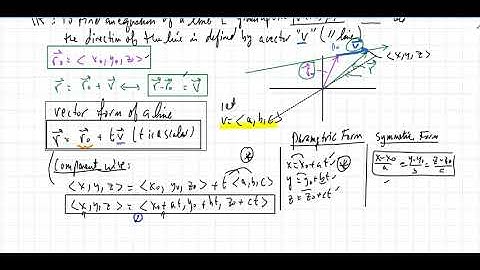 To find an equation of a line L
the direction of the line is defined by a vector "v" (// line)
r₀ = < x₀, y₀, z₀ >
r = r₀ + v ⟷ r - r₀ = v
<x, y, z>
r₀
v
r
vector form of a line
r = r₀ + t v (t is a scalar)
let
v = < a, b, c >
Component wise:
<x, y, z> = <x₀, y₀, z₀> + t <a, b, c>
<x, y, z> = <x₀ + at, y₀ + bt, z₀ + ct>
Parametric Form
x = x₀ + at
y = y₀ + bt
z = z₀ + ct
Symmetric Form
x - x₀ / a = y - y₀ / b = z - z₀ / c